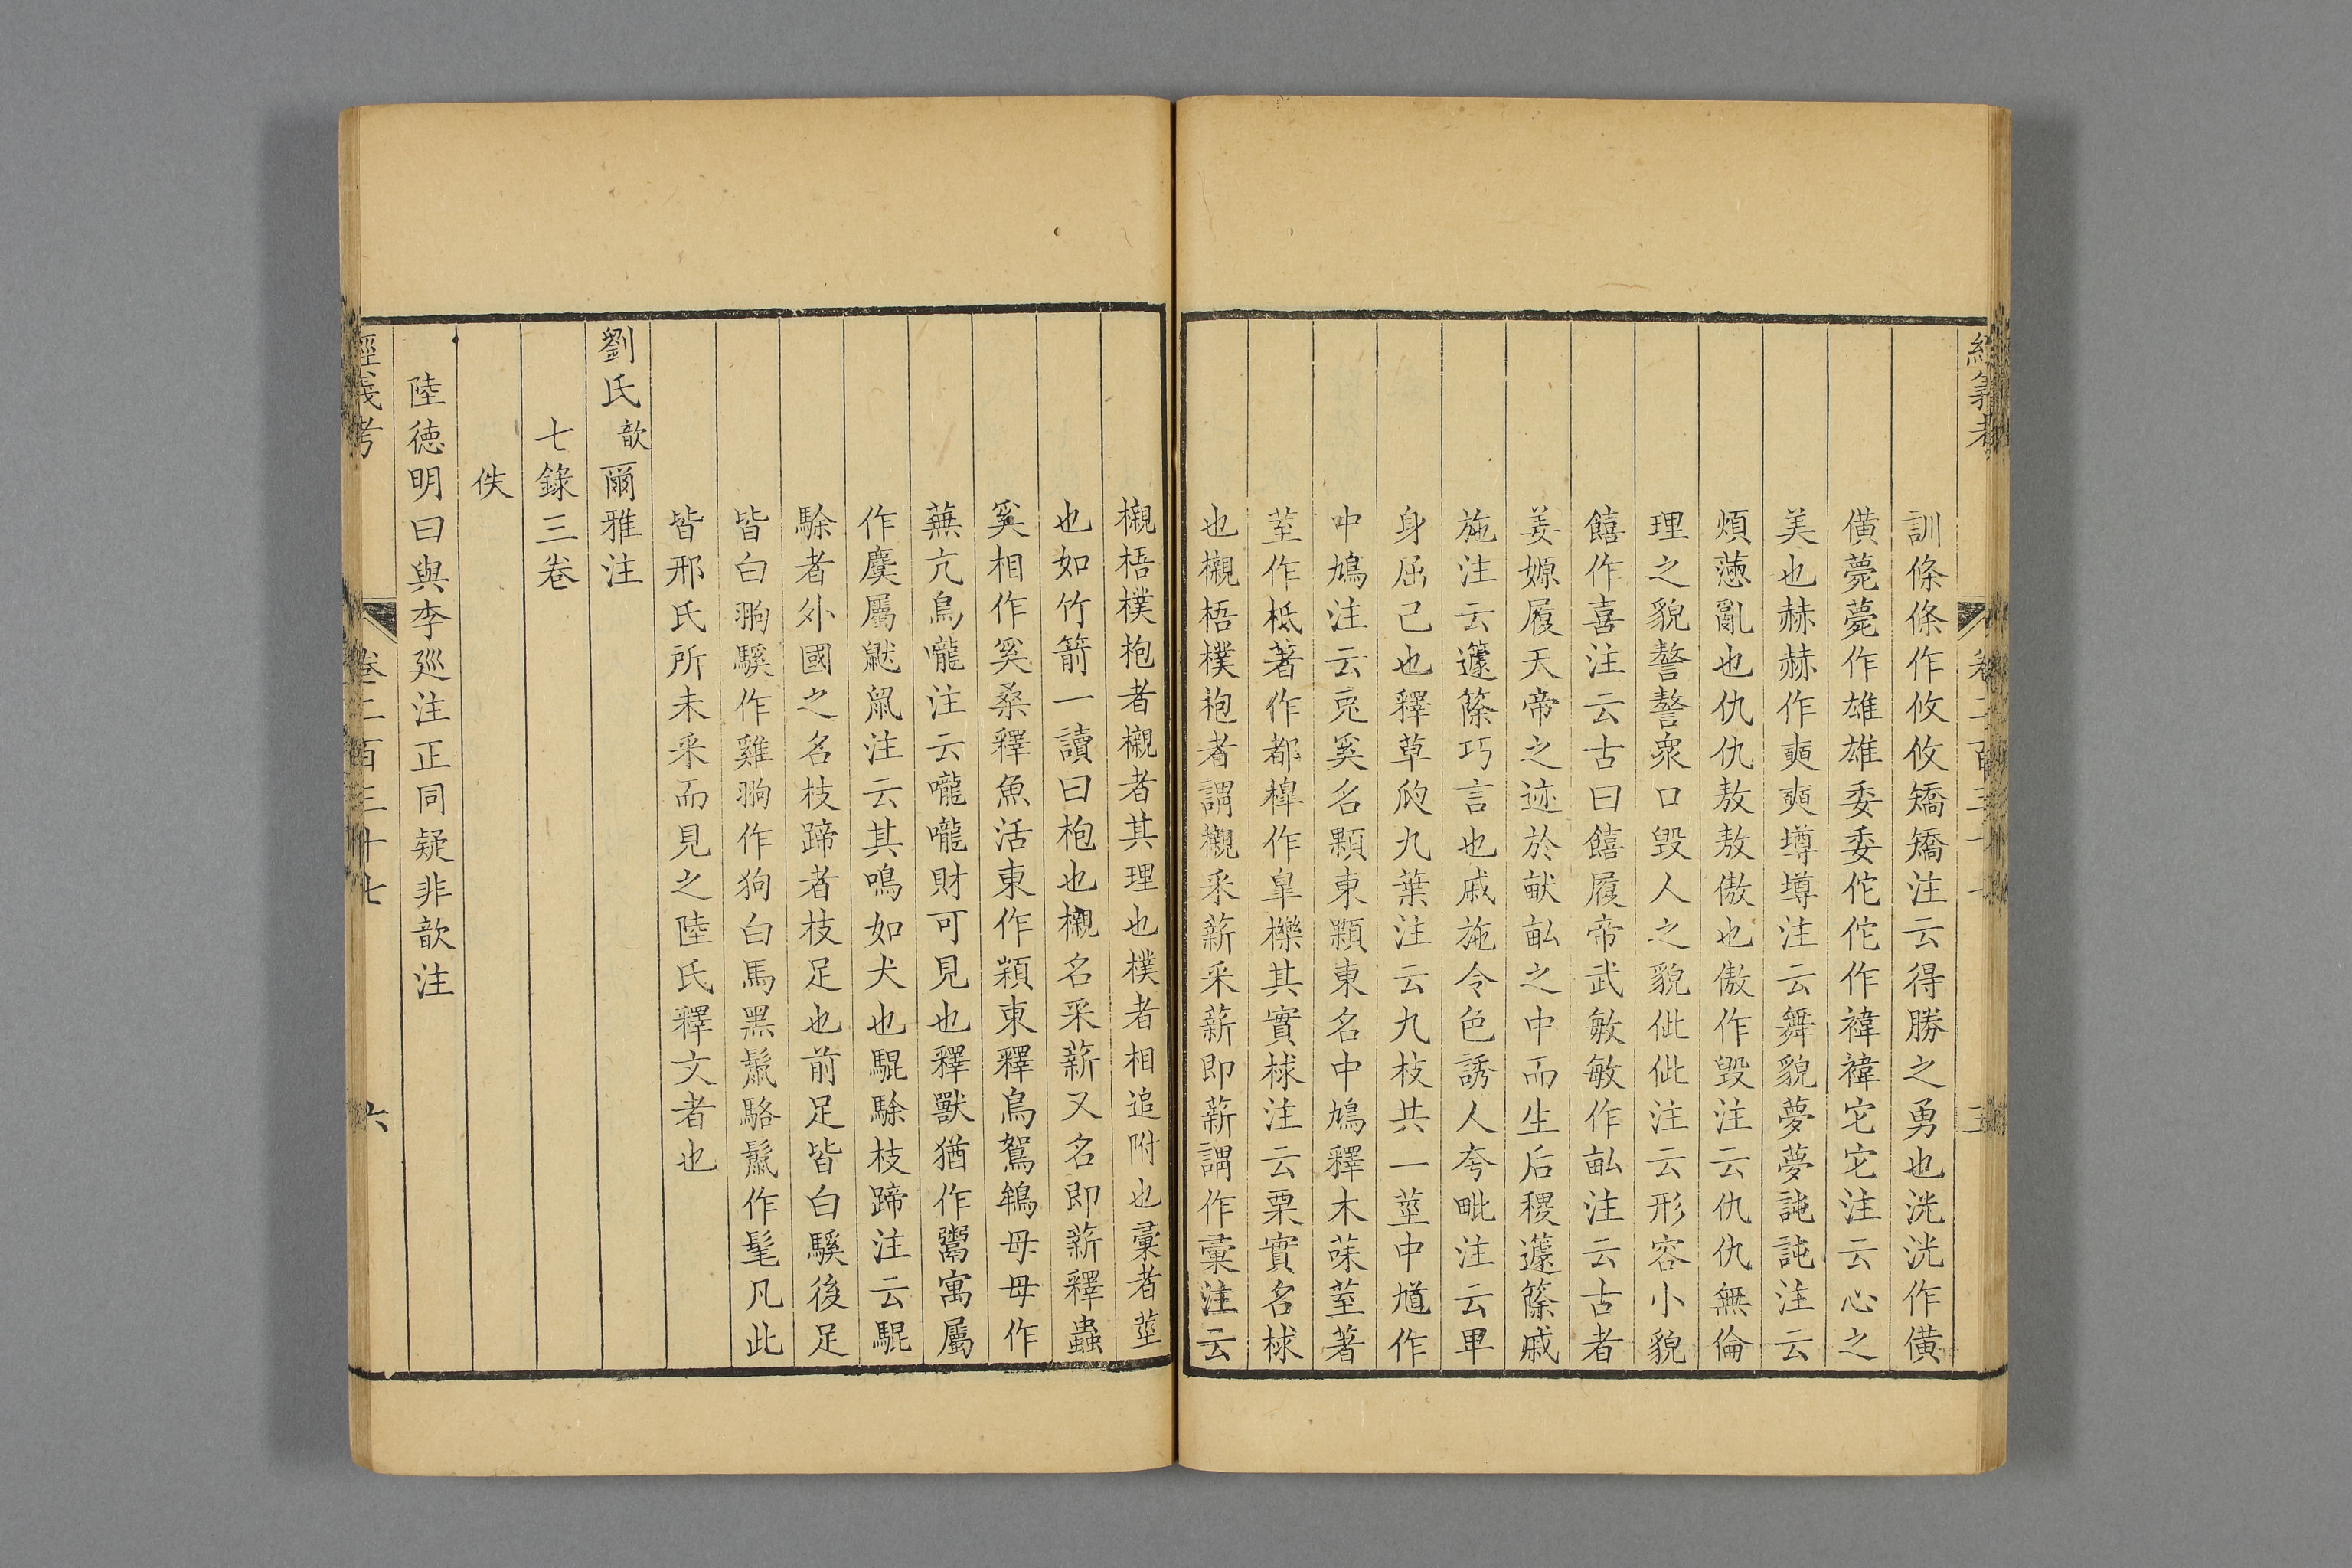 訓條條作攸攸矯矯注云得勝之勇也洸洸作僙
僙薨薨作雄雄委委佗佗作褘褘它它注云心之
美也赫赫作奭奭壿壿注云舞貌夢夢訰訰注云
煩懣亂也仇仇敖敖傲也傲作毀注云仇仇無倫
理之貌謷謷衆口毀人之貌佌佌注云形容小貌
饎作喜注云古曰饎履帝武敏敏作畝注云古者
姜嫄履天帝之迹於畎畝之中而生后稷籧篨戚
施注云籧篨巧言也戚施令色誘人夸毗注云卑
身屈己也釋草瓝九葉注云九枝共一莖中馗作
中鳩注云兎奚名顆東顆東名中鳩釋木菋荎著
荎作柢著作都樟作皐櫟其實梂注云栗實名梂
也櫬梧樸枹者謂櫬采薪采薪即薪謂作彙注云
櫬梧樸枹者櫬者其理也樸者相追附也彙者莖
也如竹箭一讀曰枹也櫬名采薪又名即薪釋蟲
奚相作奚桑釋魚活東作顈東釋鳥鴽鴾母母作
蕪亢鳥嚨注云嚨嚨財可見也釋獸猶作鬻寓屬
作麌屬鼣鼠注云其鳴如犬也騉駼枝蹄注云騉
駼者外國之名枝蹄者枝足也前足皆白騱後足
皆白翑騱作雞翑作狗白馬黑鬛駱鬛作髦凡此
皆邢氏所未采而見之陸氏釋文者也
劉氏歆爾雅注
七錄三卷
佚
陸德明曰與李巡注正同疑非歆注
經義考 卷二百三十七 六